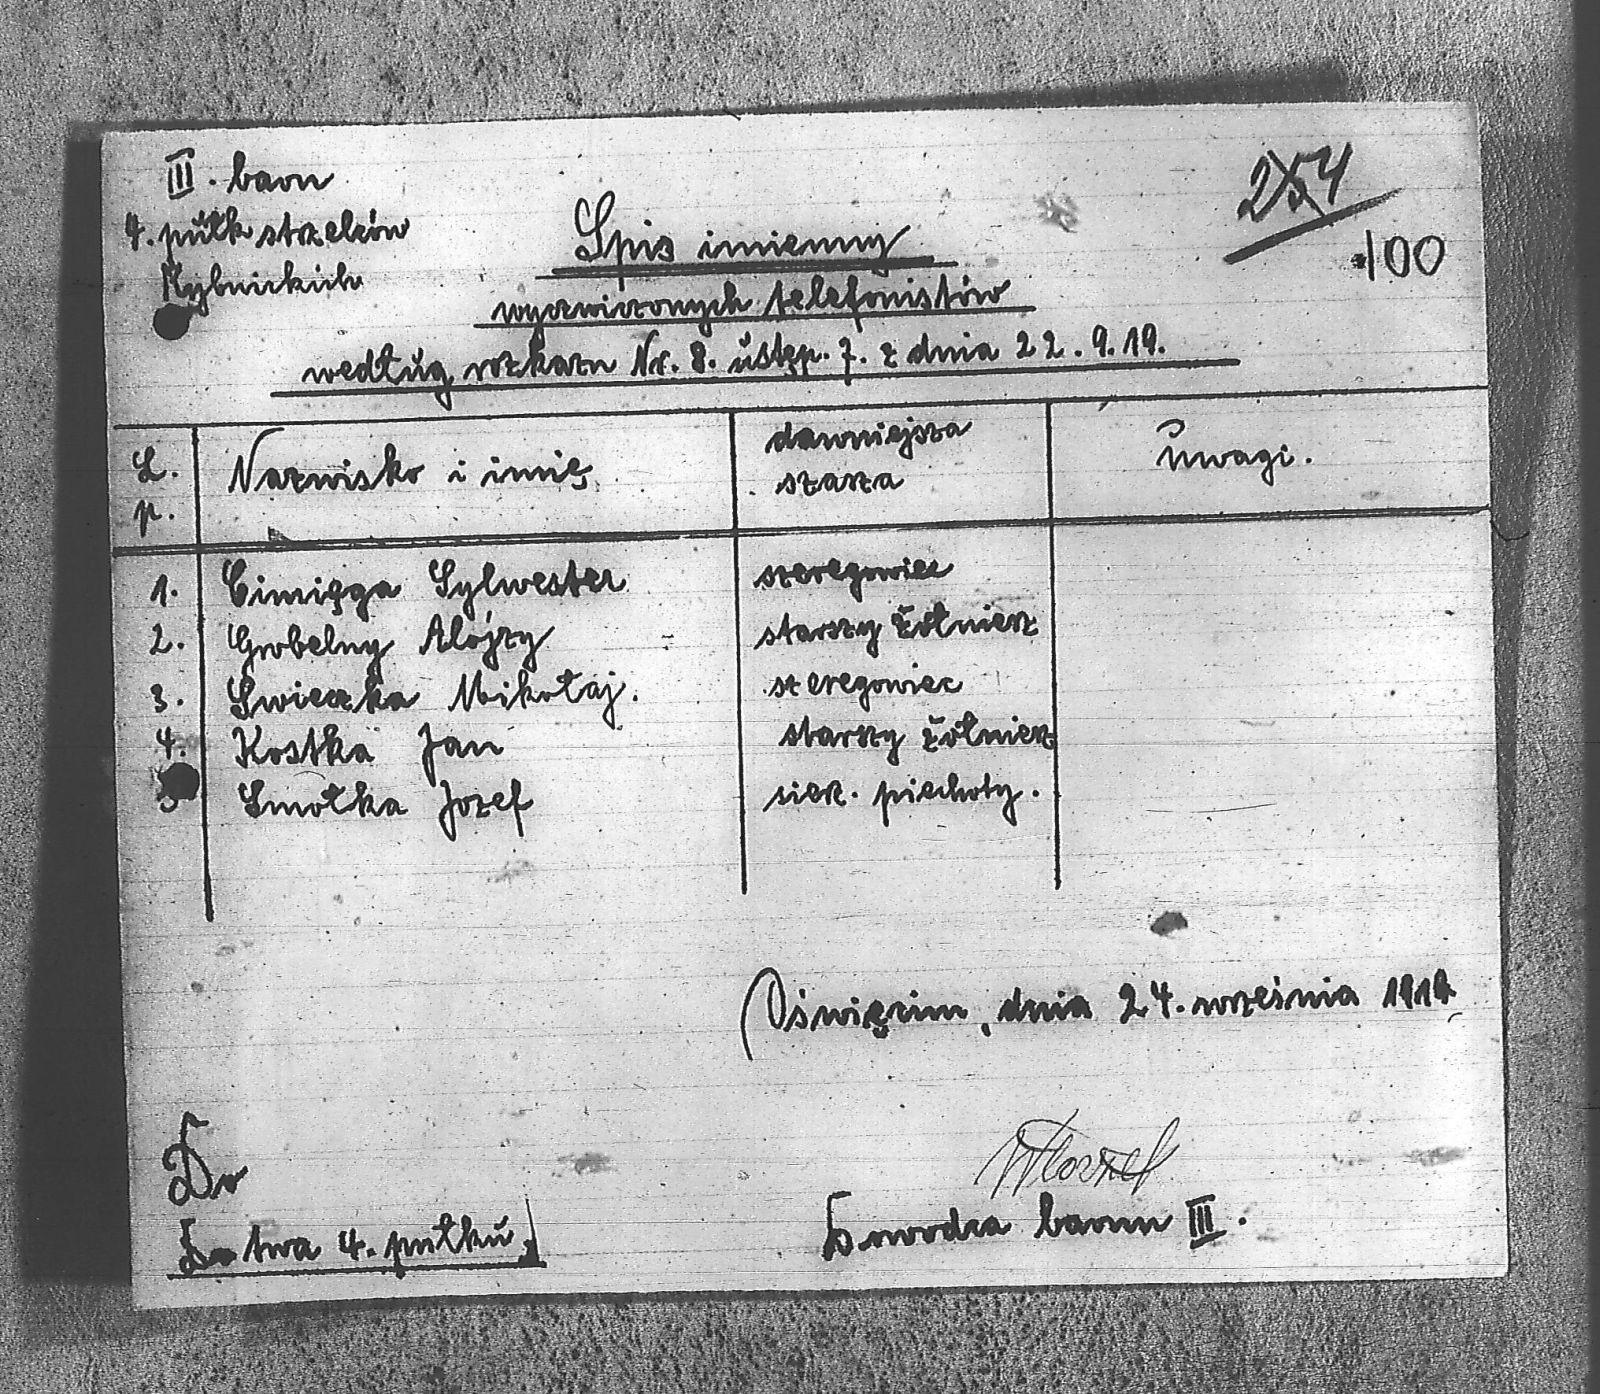 III. baon
4. pułk strzelców
Rybnickich
254
100
Spis imienny
wyćwiczonych telefonistów
według rozkazu Nr. 8. ustęp. 7. z dnia 22. 9. 19.
L. p.
Nazwisko i imię
dawniejsza szarża
Uwagi.
1. Cimięga Sylwester szeregowiec
2. Grobelny Alojzy starszy żołnierz
3. Swierzka Mikołaj. szeregowiec
4. Kostka Jan starszy żołnierz
5 Smołka Jozef sierż. piechoty.
Oświęcim, dnia 24. września 1919
Do
D-twa 4. pułku.
D-wodca baonu III.